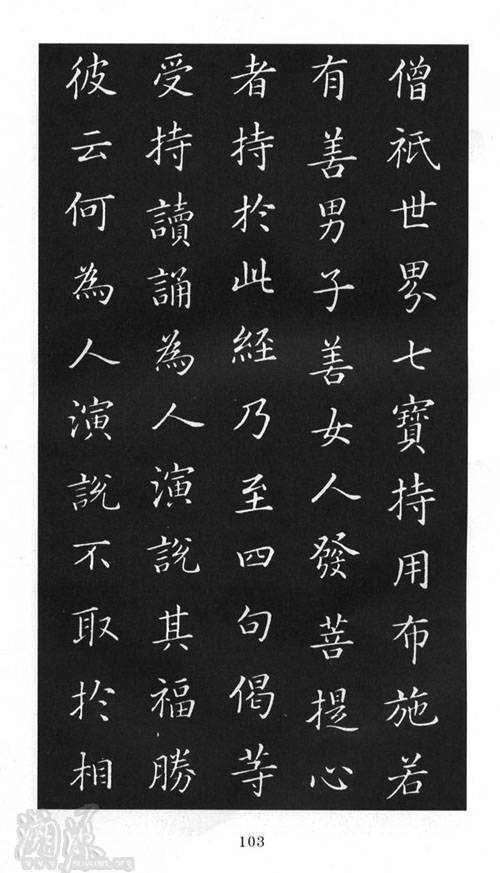 僧祇世界七寶持用布施若
有善男子善女人發菩提心
者持於此經乃至四句偈等
受持讀誦為人演說其福勝
彼云何為人演說不取於相
103
溯源
www.suyuan.org